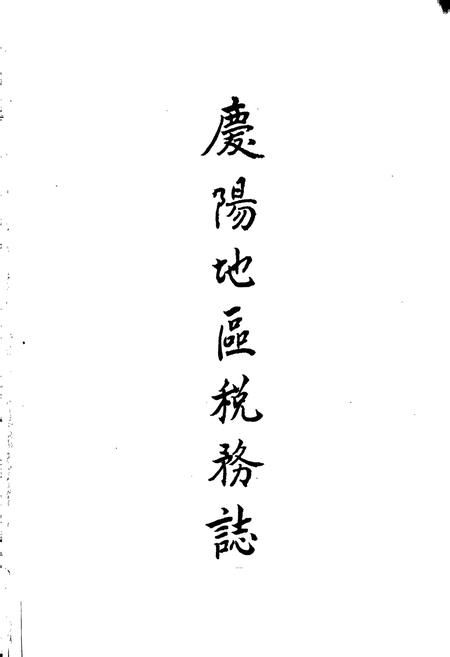 慶陽地區税務誌